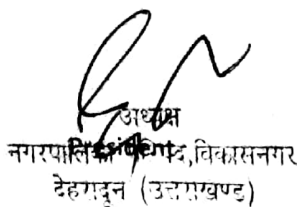 अध्यक्ष
President
नगरपालिका परिषद,विकासनगर
देहरादून (उत्तराखण्ड)